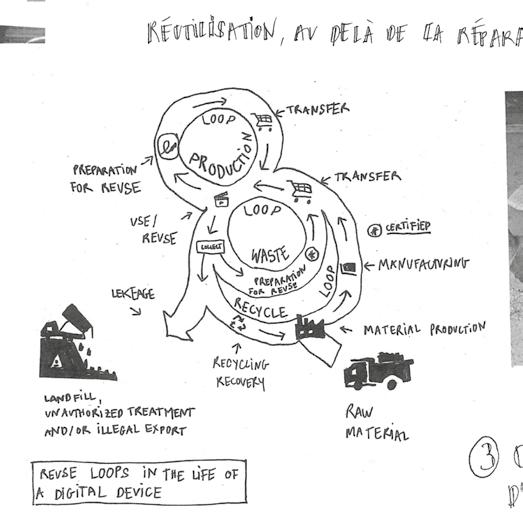 RÉUTILISATION, AU DELÀ DE LA RÉPARA
LOOP
PRODUCTION
TRANSFER
PREPARATION
FOR REUSE
TRANSFER
USE/
REUSE
LOOP
WASTE
COLLECT
CERTIFIED
PREPARATION
FOR REUSE
LOOP
MANUFACTURING
LEKEAGE
RECYCLE
MATERIAL PRODUCTION
RECYCLING
RECOVERY
LANDFILL,
UNAUTHORIZED TREATMENT
AND/OR ILLEGAL EXPORT
RAW
MATERIAL
3
REUSE LOOPS IN THE LIFE OF
A DIGITAL DEVICE